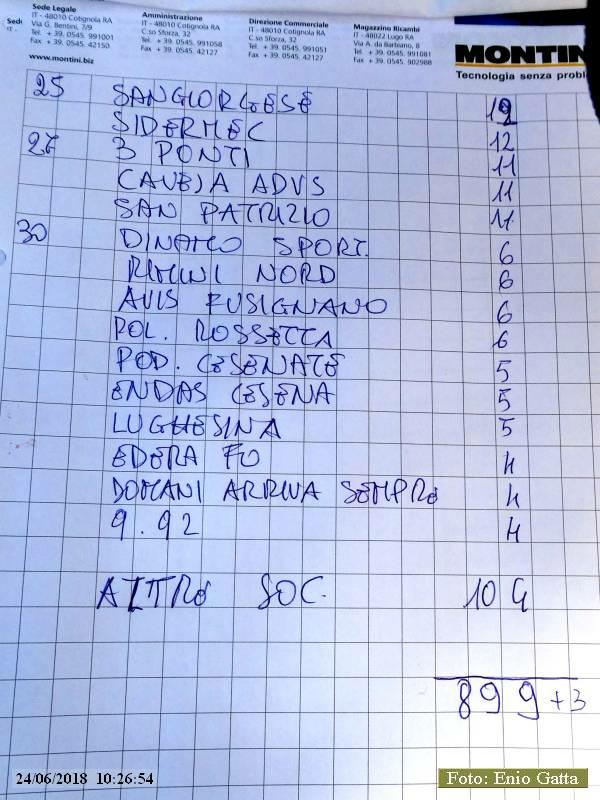 Sede Legale
IT - 48010 Cotignola RA
Via G. Bentini, 7/9
Tel. + 39. 0545. 991001
Fax + 39. 0545. 42150
www.montini.biz
Amministrazione
IT - 48010 Cotignola RA
C.so Sforza, 32
Tel. + 39. 0545. 991058
Fax + 39. 0545. 42127
Direzione Commerciale
IT - 48010 Cotignola RA
C.so Sforza, 32
Tel. + 39. 0545. 991051
Fax + 39. 0545. 42127
Magazzino Ricambi
IT - 48022 Lugo RA
Via A. da Barbiano, 8
Tel. + 39. 0545. 991081
Fax + 39. 0545. 902988
MONTIN
Tecnologia senza probl
25 SANGIORGESE 12
SIDERMEC 12
27 3 PONTI 11
CAVEJA ADVS 11
SAN PATRIZIO 11
30 DINAMO SPORT. 6
RIMINI NORD 6
AVIS FUSIGNANO 6
POL. ROSSETTA 6
POD. CESENATE 5
ENDAS CESENA 5
LUGHESINA 5
EDERA FO 4
DOMANI ARRIVA SEMPRE 4
9.92 4
ALTRE SOC. 104
899 +3
24/06/2018 10:26:54
Foto: Enio Gatta